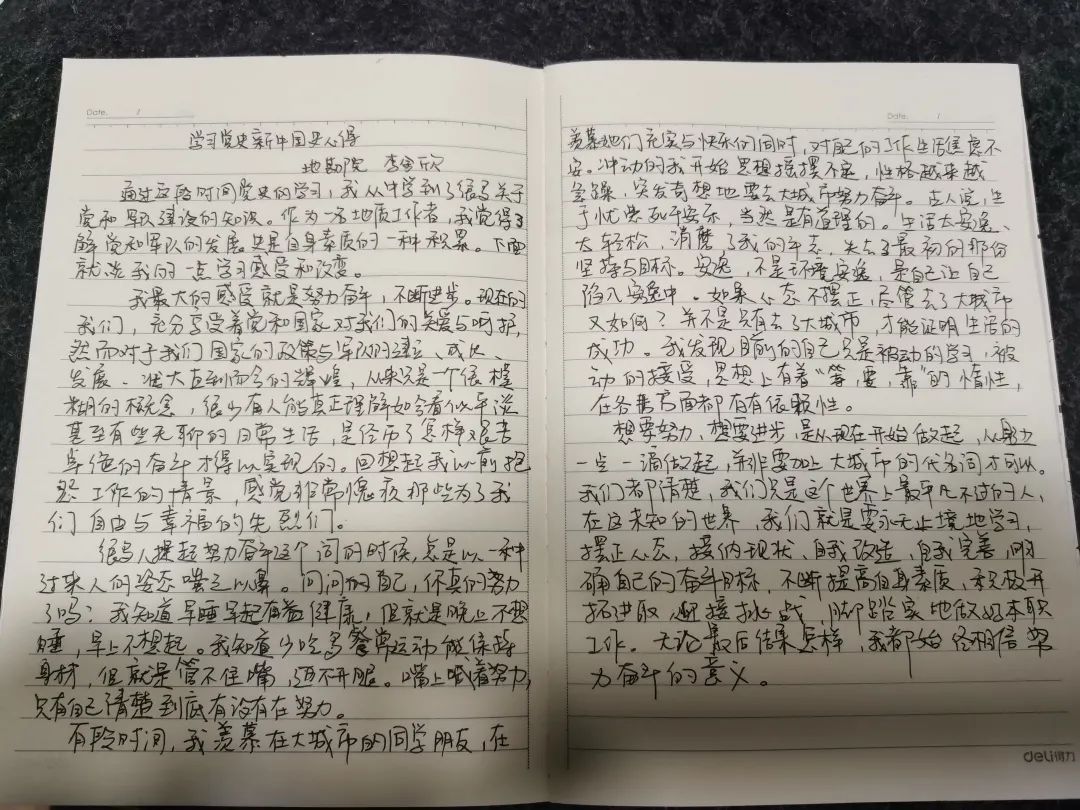 Date. /
学习党史新中国史心得
地勘院 李雪欣
通过这段时间党史的学习，我从中学到了很多关于
党和军队建设的知识。作为一名地质工作者，我觉得了
解党和军队的发展也是自身素质的一种积累。下面
就说说我的一点学习感受和改变。
我最大的感受就是努力奋斗，不断进步。现在的
我们，充分享受着党和国家对我们的关爱与呵护，
然而对于我们国家的政策与军队的建立、成长、
发展、壮大直到而今的辉煌，从来只是一个很模
糊的概念，很少有人能真正理解如今看似平淡
甚至有些无聊的日常生活，是经历了怎样艰苦
卓绝的奋斗才得以实现的。回想起我以前抱
怨工作的情景，感觉非常愧疚那些为了我
们自由与幸福的先烈们。
很多人提起努力奋斗这个词的时候，总是以一种
过来人的姿态嗤之以鼻。问问的自己，你真的努力
了吗？我知道早睡早起有益健康，但就是晚上不想
睡，早上不想起。我知道少吃多餐常运动能保持
身材，但就是管不住嘴，迈不开腿。嘴上喊着努力，
只有自己清楚到底有没有在努力。
有段时间，我羡慕在大城市的同学朋友，在
Date. /
羡慕他们充实与快乐的同时，对自己的工作生活焦虑不
安。冲动的我开始思想摇摆不定，性格越来越
急躁，突发奇想地要去大城市努力奋斗。古人说，生
于忧患死于安乐，当然是有道理的。生活太安逸、
太轻松，消磨了我的斗志，失去了最初的那份
坚持与目标。安逸，不是环境安逸，是自己让自己
陷入安逸中。如果心态不摆正，尽管去了大城市
又如何？并不是只有去了大城市，才能证明生活的
成功。我发现目前的自己只是被动的学习，被
动的接受，思想上有着“等，要，靠”的惰性，
在各类方面都存有依赖性。
想要努力、想要进步，是从现在开始做起，从身边
一点一滴做起，并非要加上大城市的代名词才可以。
我们都清楚，我们只是这个世界上最平凡不过的人，
在这未知的世界，我们就是要永无止境地学习，
摆正心态，接纳现状，自我改造，自我完善，明
确自己的奋斗目标，不断提高自身素质，积极开
拓进取，迎接挑战，脚踏实地做好本职
工作。无论最后结果怎样，我都始终相信努
力奋斗的意义。
deli得力